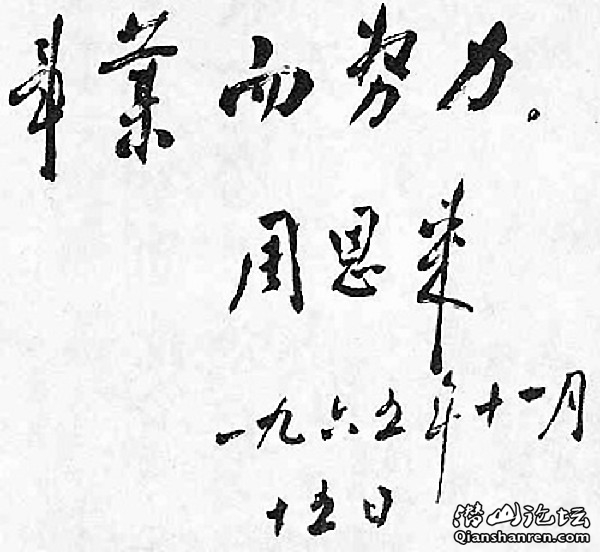 事業而努力。
周恩来
一九六五年十一月
十五日
潜山论坛
Qianshanren.com